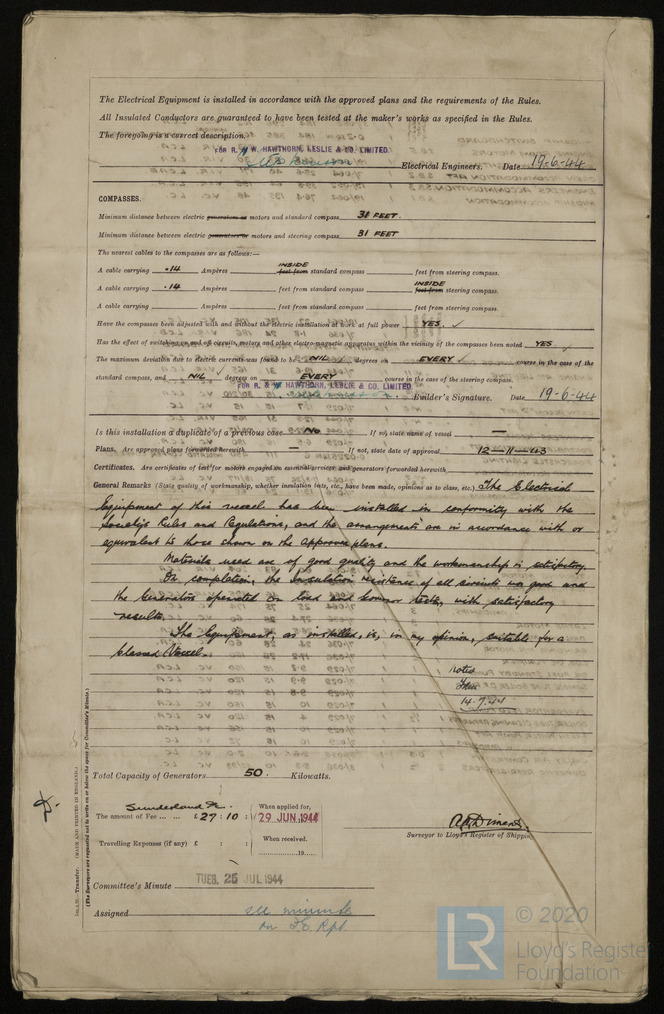 The Electrical Equipment is installed in accordance with the approved plans and the requirements of the Rules.
All Insulated Conductors are guaranteed to have been tested at the maker's works as specified in the Rules.
The foregoing is a correct description.
FOR R. & W. HAWTHORN, LESLIE & CO. LIMITED.
Electrical Engineers. Date 19-6-44
COMPASSES.
Minimum distance between electric generators or motors and standard compass 38 FEET.
Minimum distance between electric generators or motors and steering compass 31 FEET
The nearest cables to the compasses are as follows:—
A cable carrying .14 Ampères INSIDE feet from standard compass feet from steering compass.
A cable carrying .14 Ampères feet from standard compass INSIDE feet from steering compass.
A cable carrying Ampères feet from standard compass feet from steering compass.
Have the compasses been adjusted with and without the electric installation at work at full power YES. ✓
Has the effect of switching on and off circuits, motors and other electro-magnetic apparatus within the vicinity of the compasses been noted YES ✓
The maximum deviation due to electric currents was found to be NIL ✓ degrees on EVERY ✓ course in the case of the
standard compass, and NIL ✓ degrees on EVERY course in the case of the steering compass.
FOR R. & W. HAWTHORN, LESLIE & CO. LIMITED.
Builder's Signature. Date 19-6-44
Is this installation a duplicate of a previous case No If so, state name of vessel —
Plans. Are approved plans forwarded herewith — If not, state date of approval 12—11—43
Certificates. Are certificates of test for motors engaged on essential services and generators forwarded herewith
General Remarks (State quality of workmanship, whether insulation tests, etc., have been made, opinions as to class, etc.) The Electrical
Equipment of this vessel has been installed in conformity with the
Society's Rules and Regulations, and the arrangements are in accordance with or
equivalent to those shown on the approved plans.
Materials used are of good quality and the workmanship is satisfactory.
On completion, the Insulation resistance of all circuits was good and
the Generators operated on load and Governor tests, with satisfactory
results.
The Equipment, as installed, is, in my opinion, suitable for a
Classed Vessel.
Noted
14.7.44
Total Capacity of Generators 50. Kilowatts.
Sunderland
The amount of Fee ... ... £ 27 : 10 :
When applied for,
29 JUN 1944
Travelling Expenses (if any) £ : :
When received.
19
Surveyor to Lloyd's Register of Shipping.
Committee's Minute TUES. 25 JUL 1944
Assigned See minute
on F.E. Rpt.
Transfer. (MADE AND PRINTED IN ENGLAND.)
(The Surveyors are requested not to write on or below the space for Committee's Minute.)
LR
© 2020
Lloyd's Register
Foundation